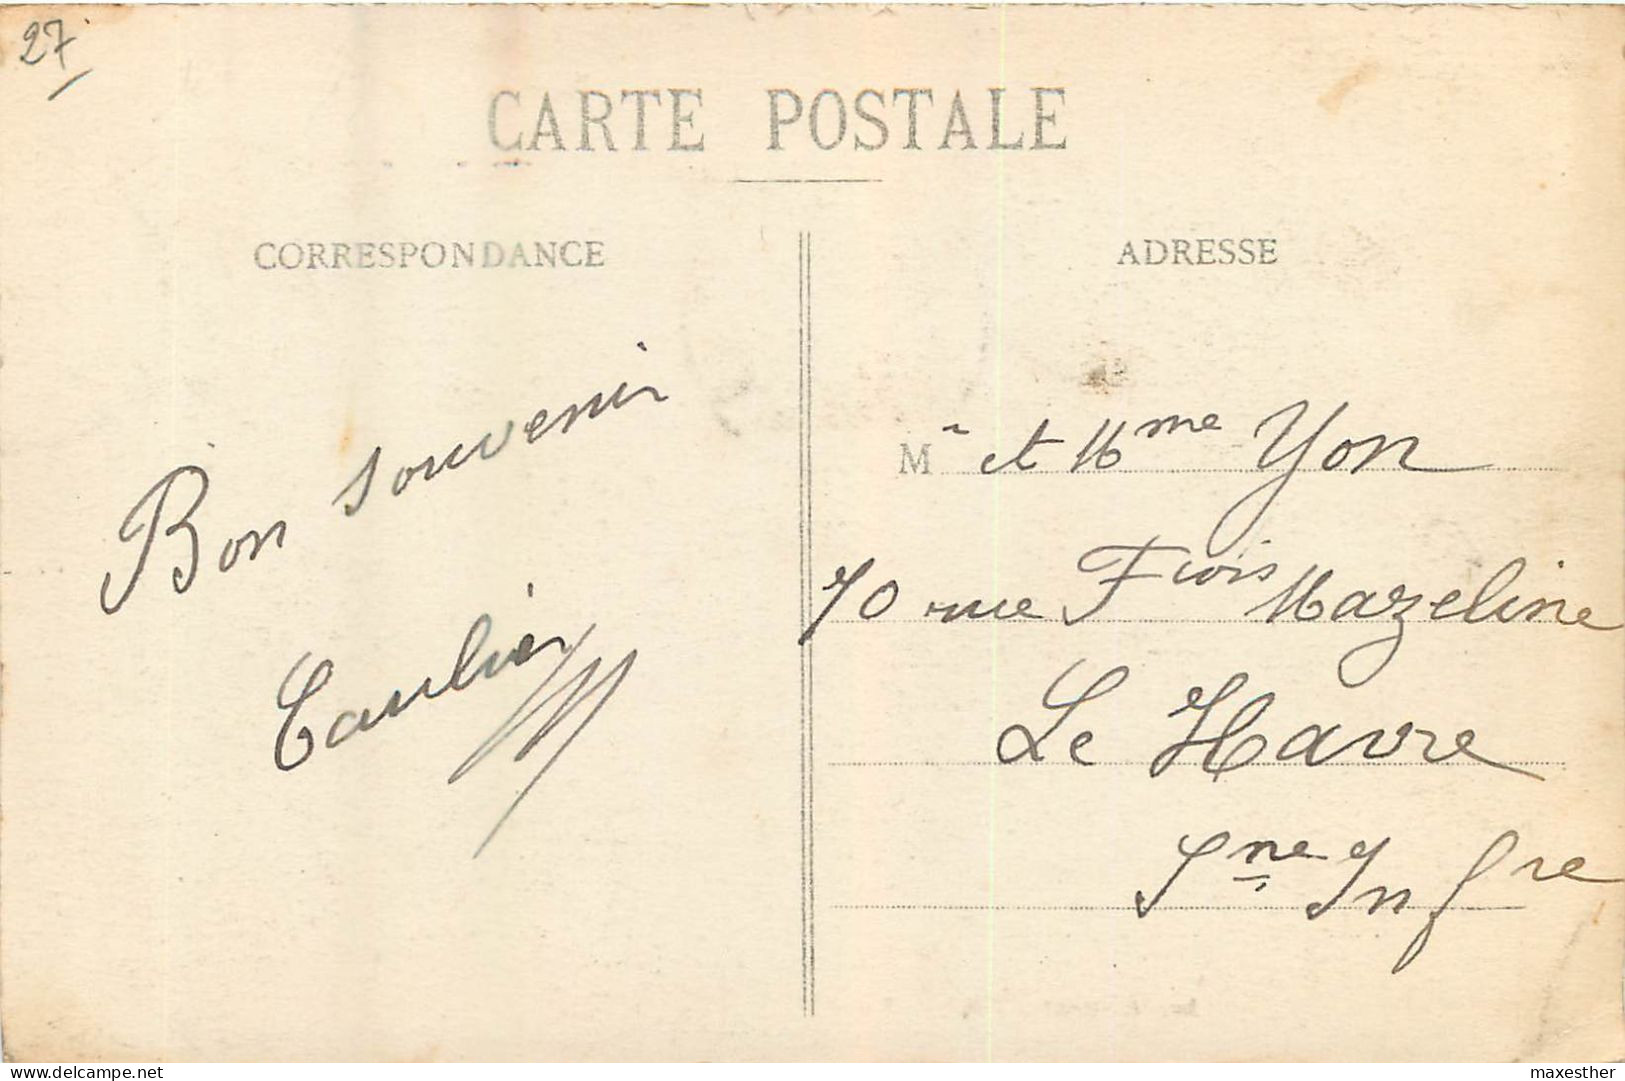 27
CARTE POSTALE
CORRESPONDANCE
ADRESSE
Bon souvenir
Caulier
Mr et Mme Yon
70 rue Fcois Mazeline
Le Havre
Sne Infre
delcampe.net
maxesther